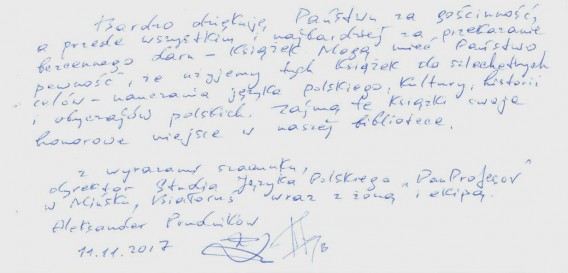 Bardzo dziękuję Państwu za gościnność,
a przede wszystkim i najbardziej za przekazanie
bezcennego daru – Książek. Mogą mieć Państwo
pewność, że użyjemy tych książek do szlachetnych
celów – nauczania języka polskiego, kultury, historii
i obyczajów polskich. Zajmą te książki swoje
honorowe miejsce w naszej bibliotece.
z wyrazami szacunku,
dyrektor Studia Języka Polskiego „Pan Profesor"
w Mińsku, Białoruś wraz z żoną i ekipą.
Aleksander Prudnikow
11.11.2017